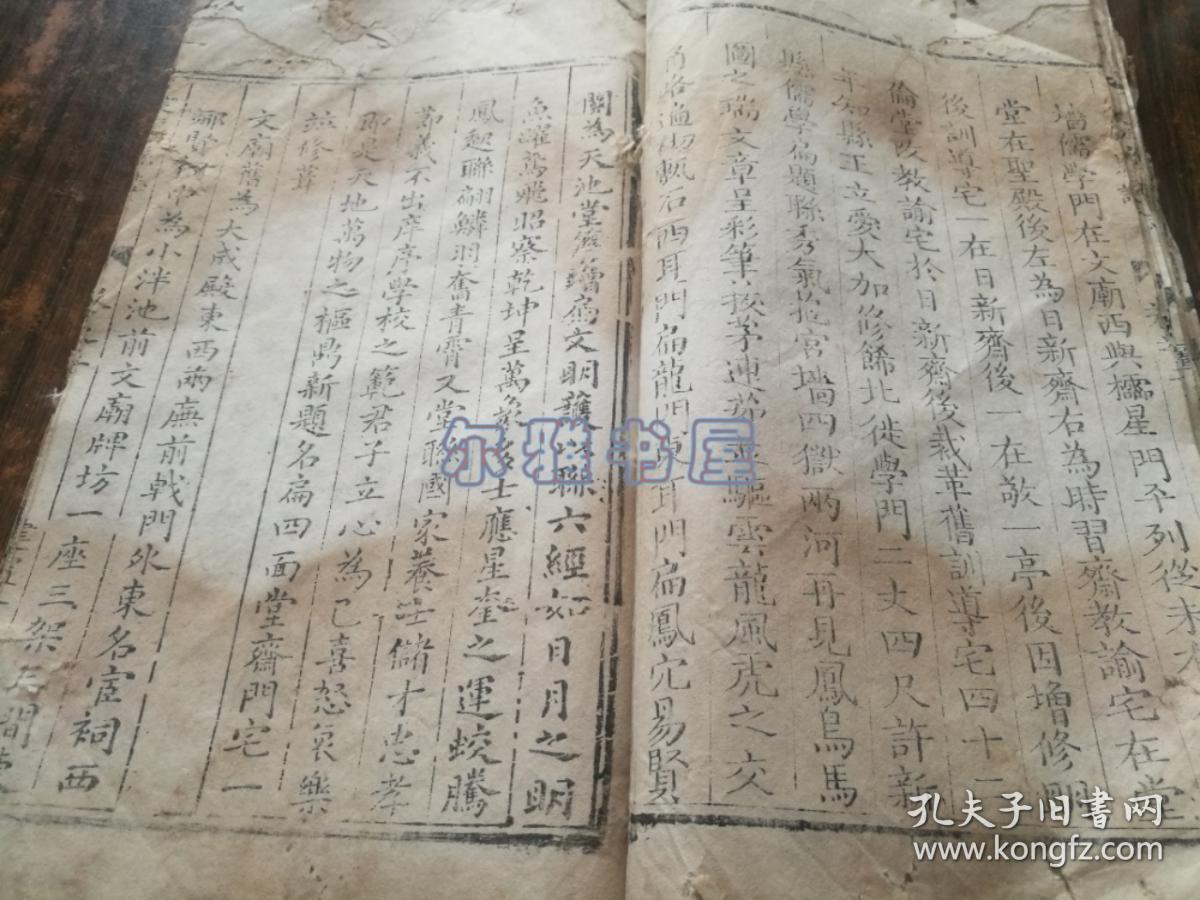 墻儒學門在文廟西與櫺星門並列後為
堂在聖殿後左為日新齋右為時習齋教諭宅在堂
後訓導宅一在日新齋後一在敬一亭後因增修明
倫堂改教諭宅於日新齋後裁革舊訓導宅四十二
年知縣王立愛大加修餙北徙學門二丈四尺許新
縣儒學扁題聯秀氣宮墻四獄兩河再見鳳鳥馬
圖之瑞文章呈彩筆茅連茹並驅雲龍風虎之交
甬路過石西耳門扁龍門東耳門扁鳳穴易賢
關為天池堂簷文明聯六經如日月之明
魚躍鳶飛昭察乾坤呈萬象多士應星奎之運蛟騰
鳳起聯翩鱗羽奮青霄又堂聯國家養士儲才忠孝
節義不出庠序學校之範君子立心為己喜怒哀樂
即是天地萬物之樞鼎新題名扁四面堂齋門宅一
並修葺
文廟舊為大成殿東西兩廡前戟門外東名宦祠西
鄉賢中為小泮池前文廟牌坊一座三架五間
尔雅书屋
孔夫子旧书网
www.kongfz.com